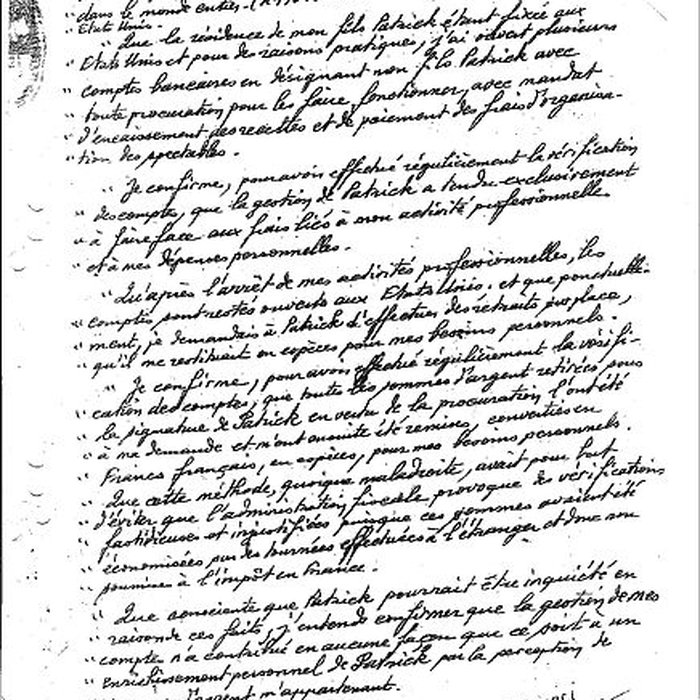 " dans le monde entier.
" Etats Unis.
" Que la résidence de mon fils Patrick étant fixée aux
" Etats Unis et pour des raisons pratiques, j'ai ouvert plusieurs
" comptes bancaires en désignant mon fils Patrick avec
" toute procuration pour les faire fonctionner, avec mandat
" d'encaissement des recettes et de paiement des frais d'organisa-
" tion des spectacles.
" Je confirme, pour avoir effectué régulièrement la vérification
" des compte, que la gestion de Patrick a tendu exclusivement
" à faire face aux frais liés à mon activité professionnelle
" et à mes dépenses personnelles.
" Qu'après l'arrêt de mes activités professionnelles, les
" comptes sont restés ouverts aux Etats Unis, et que ponctuelle-
" ment, je demandais à Patrick d'effectuer des retraits sur place,
" qu'il me restituait en espèces pour mes besoins personnels.
" Je confirme, pour avoir effectué régulièrement la vérifi-
" cation des comptes, que toutes les sommes d'argent retirées sous
" la signature de Patrick en vertu de la procuration l'ont été
" à ma demande et m'ont ensuite été remises, converties en
" Francs français, en espèces, pour mes besoins personnels.
" Que cette méthode, quoique maladroite, avait pour but
" d'éviter que l'administration fiscale provoque des vérifications
" fastidieuses et injustifiées puisque ces sommes avaient été
" économisées par des tournées effectuées à l'étranger et donc non
" soumises à l'impôt en France.
" Que consciente que Patrick pourrait être inquiété en
" raison de ces faits, j'entends confirmer que la gestion de mes
" compte n'a contribué en aucune façon que ce soit à un
" enrichissement personnel de Patrick par la perception de
d'argent m'appartenant.